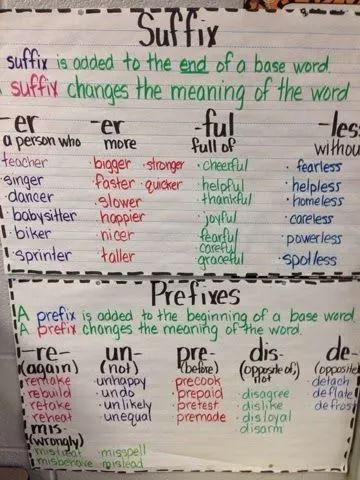 Suffix
suffix is added to the end of a base word.
A suffix changes the meaning of the word
-er -er -ful -less
a person who more full of without
teacher · bigger · stronger · cheerful · fearless
singer · faster · quicker · helpful · helpless
· dancer · slower · thankful · homeless
· babysitter · happier · joyful · careless
· biker · nicer · fearful · powerless
· careful
· sprinter · taller · graceful · spotless
Prefixes
A prefix is added to the beginning of a base word
A prefix changes the meaning of the word.
-re- un- pre- dis- de-
(again) (not) (before) (opposite of, (opposite
not
remake · unhappy · precook · detach
rebuild · undo · prepaid · disagree · deflate
retake · unlikely · pretest · dislike · defrost
reheat · unequal · premade · disloyal
mis- · disarm
(wrongly)
mistreat · misspell
misbehave · mislead